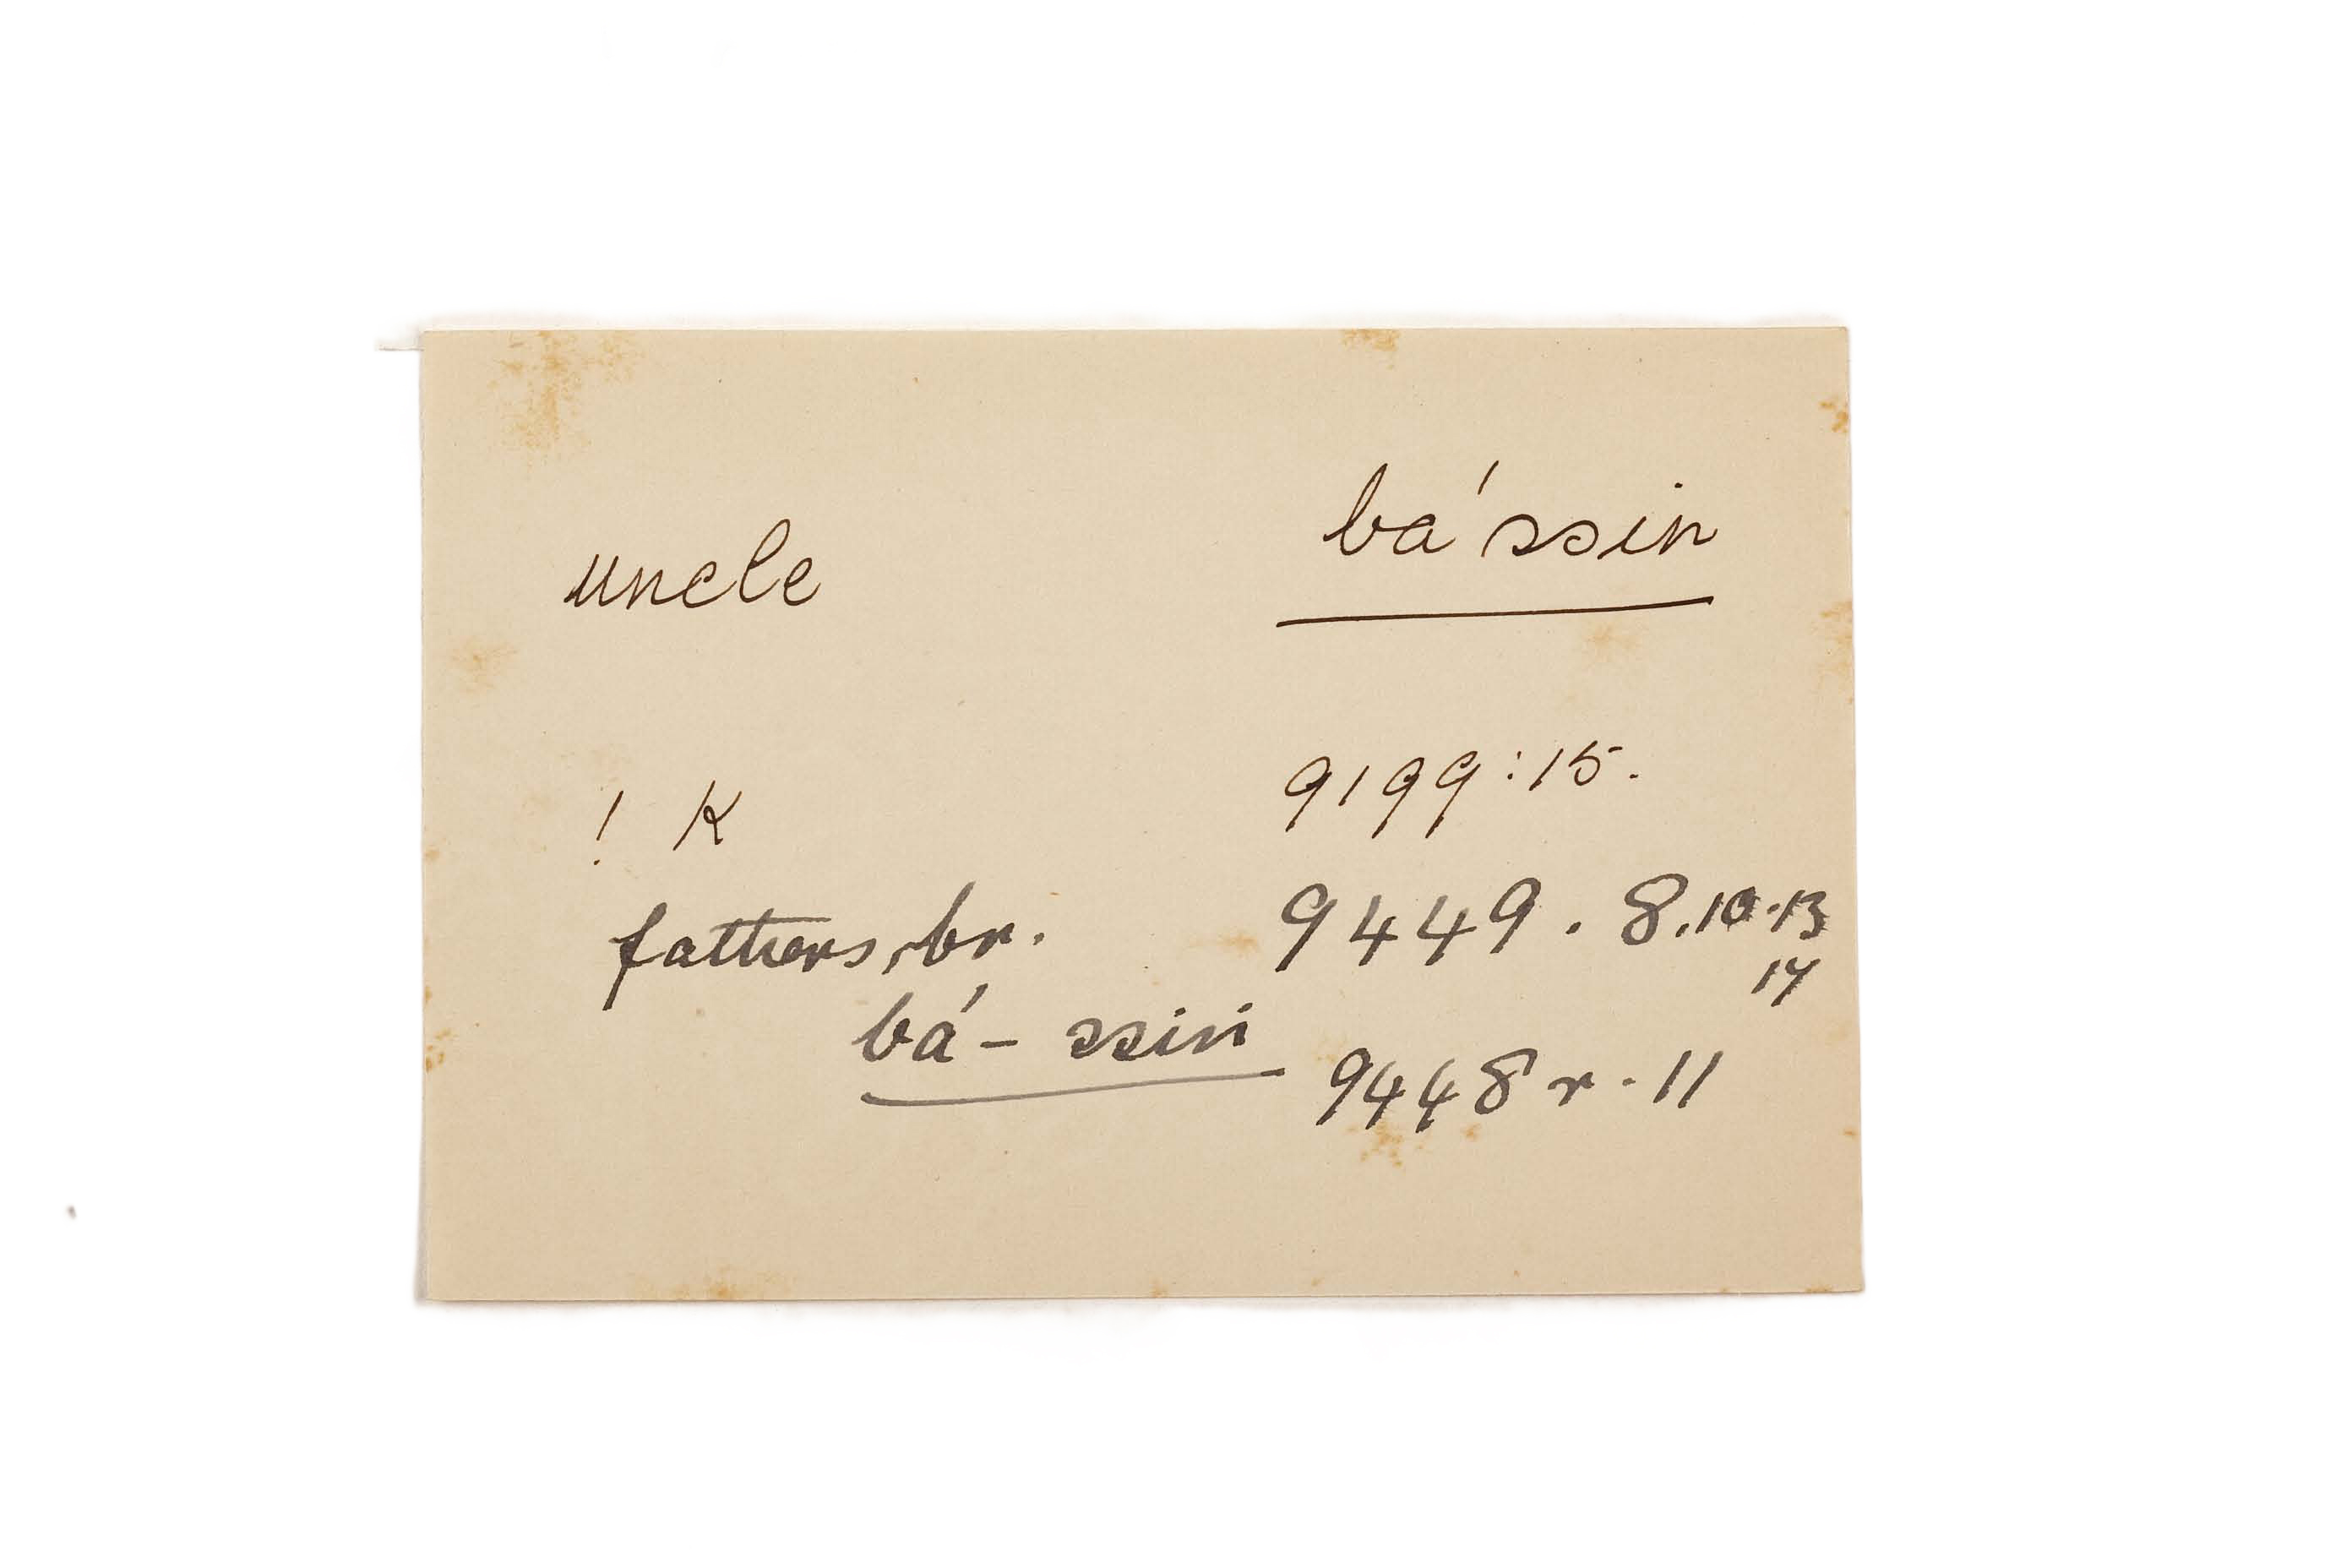 uncle bássin
! K 9199:15.
fathers, br. 9449. 8.10.13
17
bá- ssin 9448 r. 11